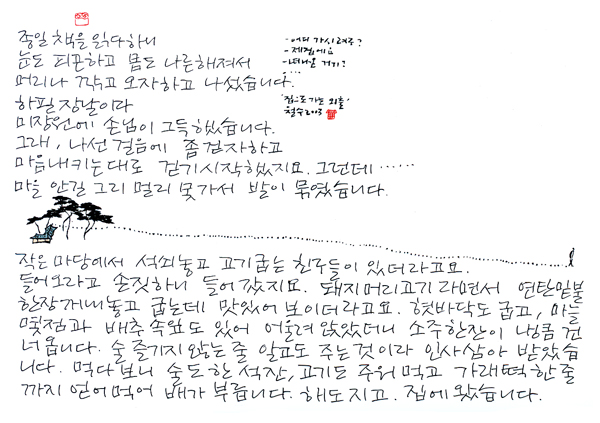 종일 책을 읽다하니
눈도 피곤하고 몸도 나른해져서
머리나 깎고 오자하고 나섰습니다.
하필 장날이다
미장원에 손님이 그득했습니다.
그래, 나선 걸음에 좀 걷자하고
마음내키는대로 걷기시작했지요. 그런데 ......
마을 안길 그리 멀리 못가서 발이 묶였습니다.
- 어디 가시려구?
- 제집에요
- 거기?
- ...
'집으로 가는 외출'
철수2013
작은 마당에서 석쇠놓고 고기굽는 친구들이 있더라고요.
들어오라고 손짓하니 들어갔지요. 돼지머리고기라면서 연탄밑불
한장꺼내놓고 굽는데 맛있어 보이더라고요. 혓바닥도 굽고, 마늘
몇점과 배추속잎도 있어 어울려 앉았더니 소주한잔이 냉큼 건
너옵니다. 술 즐기지 않는 줄 알고도 주는것이라 인사삼아 받았습
니다. 먹다보니 술도 한 석잔, 고기도 주워먹고 가래떡 한 줄
까지 얻어먹어 배가 부릅니다. 해도 지고. 집에 왔습니다.